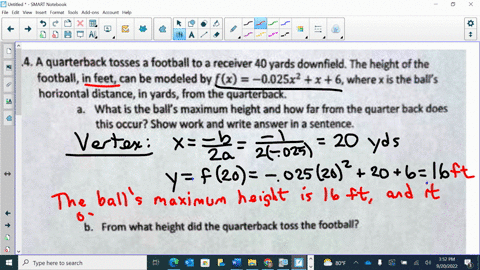 Untitled * - SMART Notebook
File Edit View Insert Format Tools Add-ons Account Help
4. A quarterback tosses a football to a receiver 40 yards downfield. The height of the
football, in feet, can be modeled by f(x) = −0.025x² + x + 6, where x is the ball's
horizontal distance, in yards, from the quarterback.
a. What is the ball's maximum height and how far from the quarter back does
this occur? Show work and write answer in a sentence.
Vertex: x = -b/2a = -1/2(-.025) = 20 yds
y = f(20) = -.025(20)² + 20 + 6 = 16 ft
The ball's maximum height is 16 ft, and it
b. From what height did the quarterback toss the football?
Type here to search
80°F
3:52 PM
9/20/2022